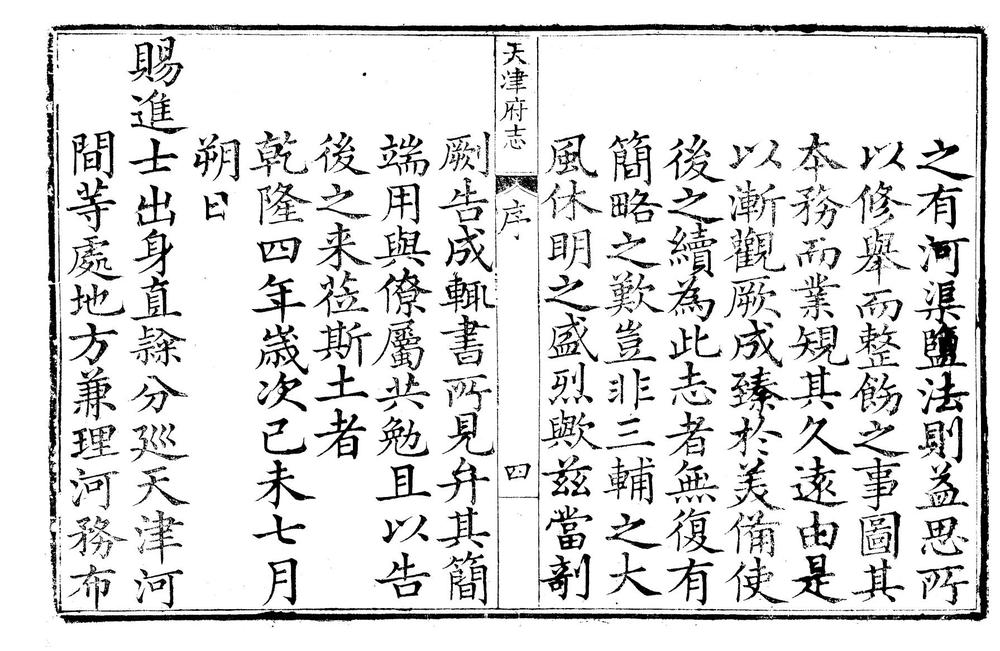 之有河渠鹽法則益思所
以修舉而整飭之事圖其
本務而業規其久遠由是
以漸觀厥成臻於美備使
後之續為此志者無復有
簡略之歎豈非三輔之大
風休明之盛烈歟茲當剞
天津府志
序
四
劂告成輒書所見弁其簡
端用與僚屬共勉且以告
後之来莅斯土者
乾隆四年歲次己未七月
朔日
賜進士出身直隸分廵天津河
間等處地方兼理河務布